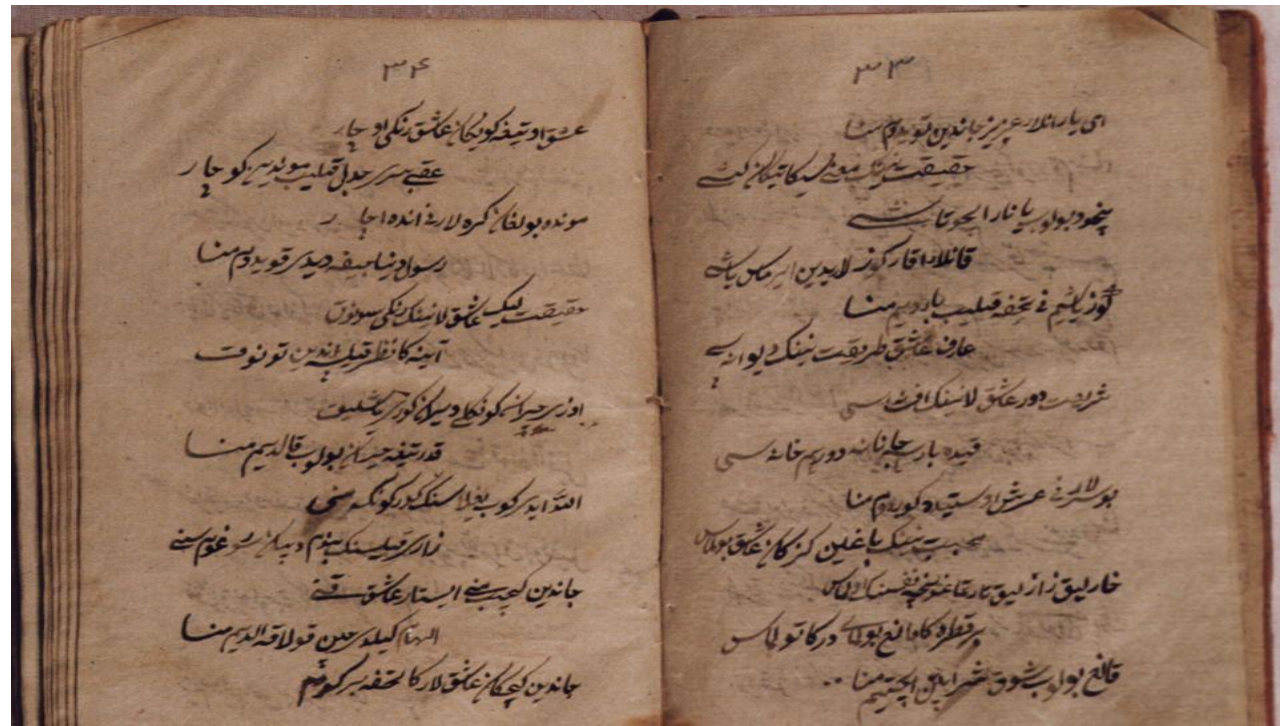 ۳۳
ای یارانلار عزیز جاندین تویدوم منا
حقیقت نینک معنی سیکا تیکان کشی
بیخود بولوب یانار ایچو تاشی
قانلار اقار کوزلاریدین ایرماس یاشی
کوز یاشیم نی تحفه قیلیب باردیم منا
عارف عاشق طریقت نینک دیوانه سی
شریعت دور عاشق لارنینک
قیده بارسه جانانه دور هم خانه سی
بو سرلارنی عرش اوستیده کوردوم منا
محبت نینک باغین کزکان عاشق بولماس
خارلیق زارلیق تارتماغونچه نفسینک اولماس
بر قطره کا قانع بولمای در کا تولماس
قانع بولوب شوق شرابین ایچتیم منا
۳۴
عشق اوتیغه کویکان عاشق رنکی اوچار
عقبی سری جدل قیلیب موندین کوچار
مونده بولغان کره لارنی انده اچار
رسول دنیا جیفه دیدی قویدوم منا
حقیقت لیک عاشق لارنینک رنکی سونوق
آینه کا نظر قیلسه اندین تونوق
اوزی حیران کونکلی ویران کوزی یاشلیق
قدرتیغه حیران بولوب قالدیم منا
الله ایدی کوب یغلاسنک کورکونک منی
زاری قیلسنک بندم دیبان سوغوم سنی
جاندین کیچیب منی ایستار عاشق قنی
الهام کیلدی مین قولاقه الدیم منا
جاندین کیچکان عاشق لارکا تحفه بیرکوم